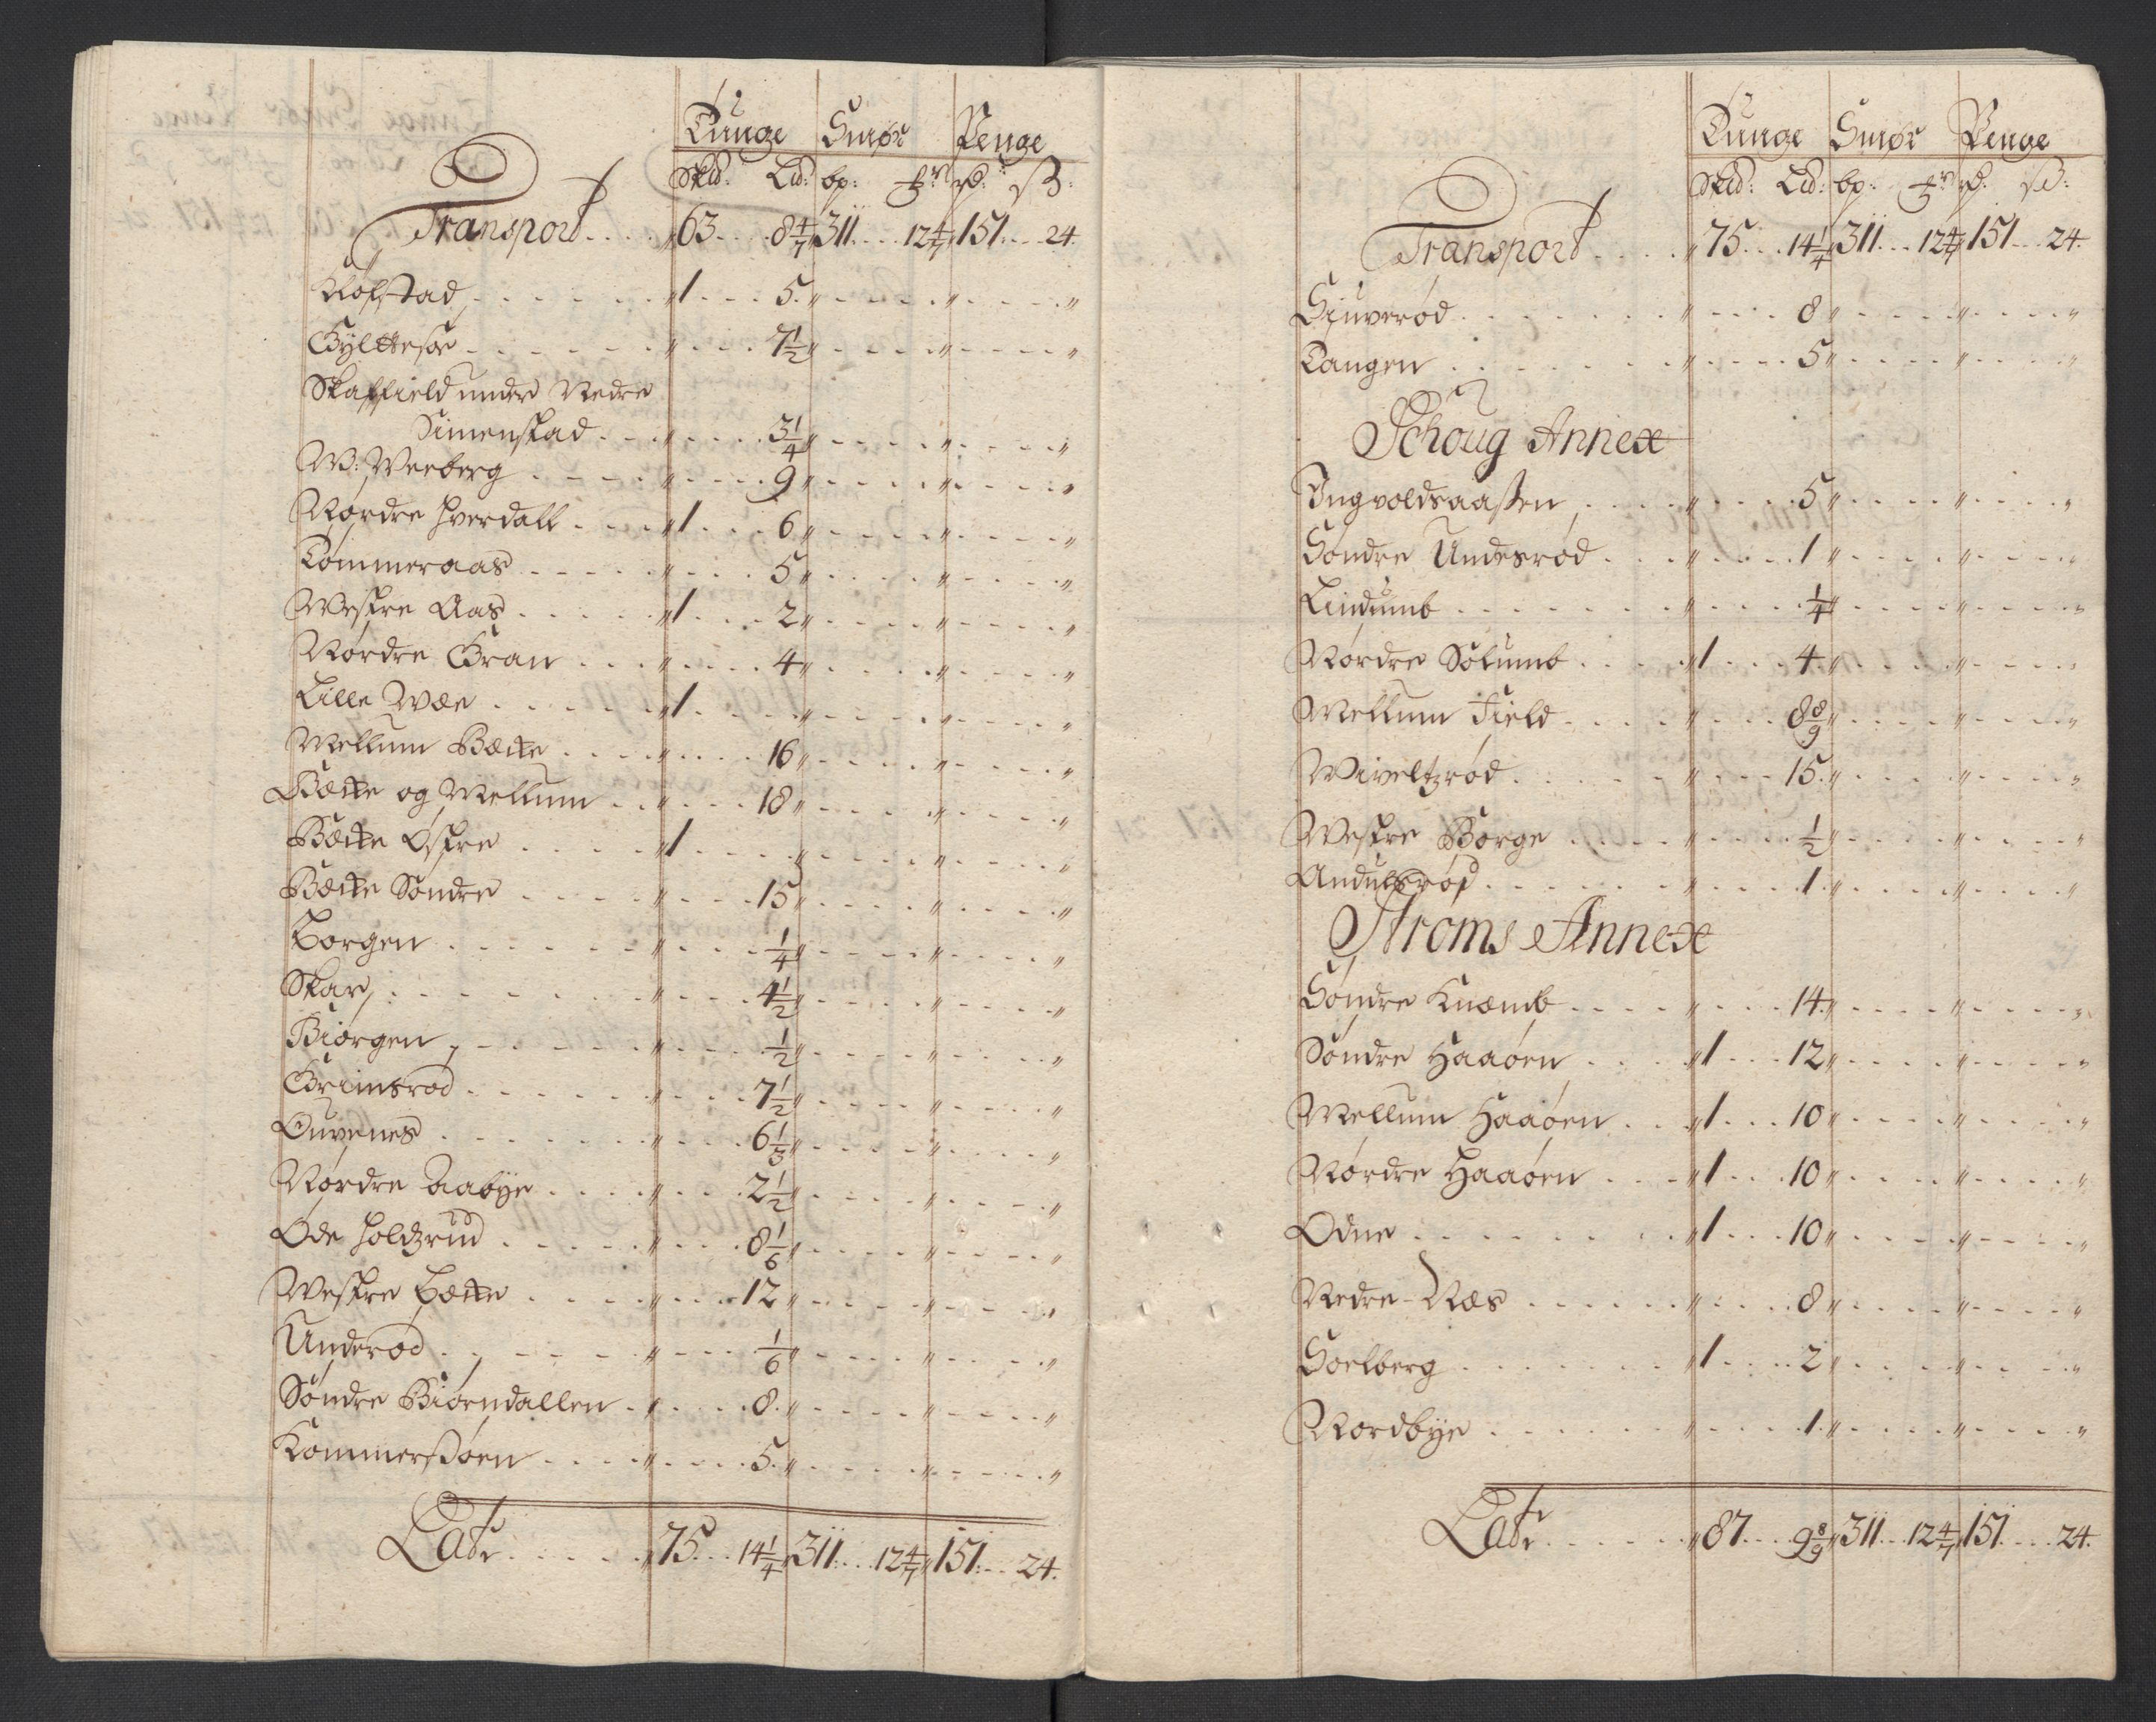 Tunge Smør Penge
Skld: Ld: bp: rd: ß:
Transport 63 8 4/7 311 12 4/7 151 24
Kløfstad 1 5
Gyltesøe 7 1/2
Skaffield under Nedre
Simenstad 3 1/4
W: Weeberg 9
Nordre Hverdall 1 6
Tømmeraas 5
Westre Aas 1 2
Nordre Gran 4
Lille Wæe 1
Mellum Bæcke 16
Bæcke og Mellum 18
Bæcke Østre 1
Bæcke Søndre 15
Borgen 1/4
Skar 4 1/2
Biørgen 1/2
Grimsrød 7 1/2
Ouvenes 6 1/3
Nordre Aabye 2 1/2
Øde Holdzrud 8 1/6
Westre Bække 12
Underød 1/6
Søndre Biørndallen 8
Kommersøen 5
Latr 75 14 1/4 311 12 4/7 151 24
Tunge Smør Penge
Skld: Ld: bp: rd: ß:
Transport 75 14 1/4 311 12 4/7 151 24
Siuverød 8
Tangen 5
Schoug Annex
Ingvoldsaasen 5
Søndre Undesrød 1
Lindumb 1/4
Nordre Solumb 1 4
Mellum Field 8 8/9
Wiveltzrød 15
Westre Borge 1/2
Andulsrød 1
Strøms Annex
Søndre Knæmb 14
Søndre Haaøen 1 12
Mellum Haaøen 1 10
Nordre Haaøen 1 10
Odne 1 10
Nedre Næs 8
Soelberg 1 2
Nordbye 1
Latr 87 9 8/9 311 12 4/7 151 24